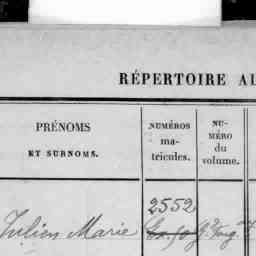 RÉPERTOIRE AL
PRÉNOMS
ET SURNOMS.
NUMÉROS
ma-
tricules.
NU-
MÉRO
du
volume.
2552
Julien Marie